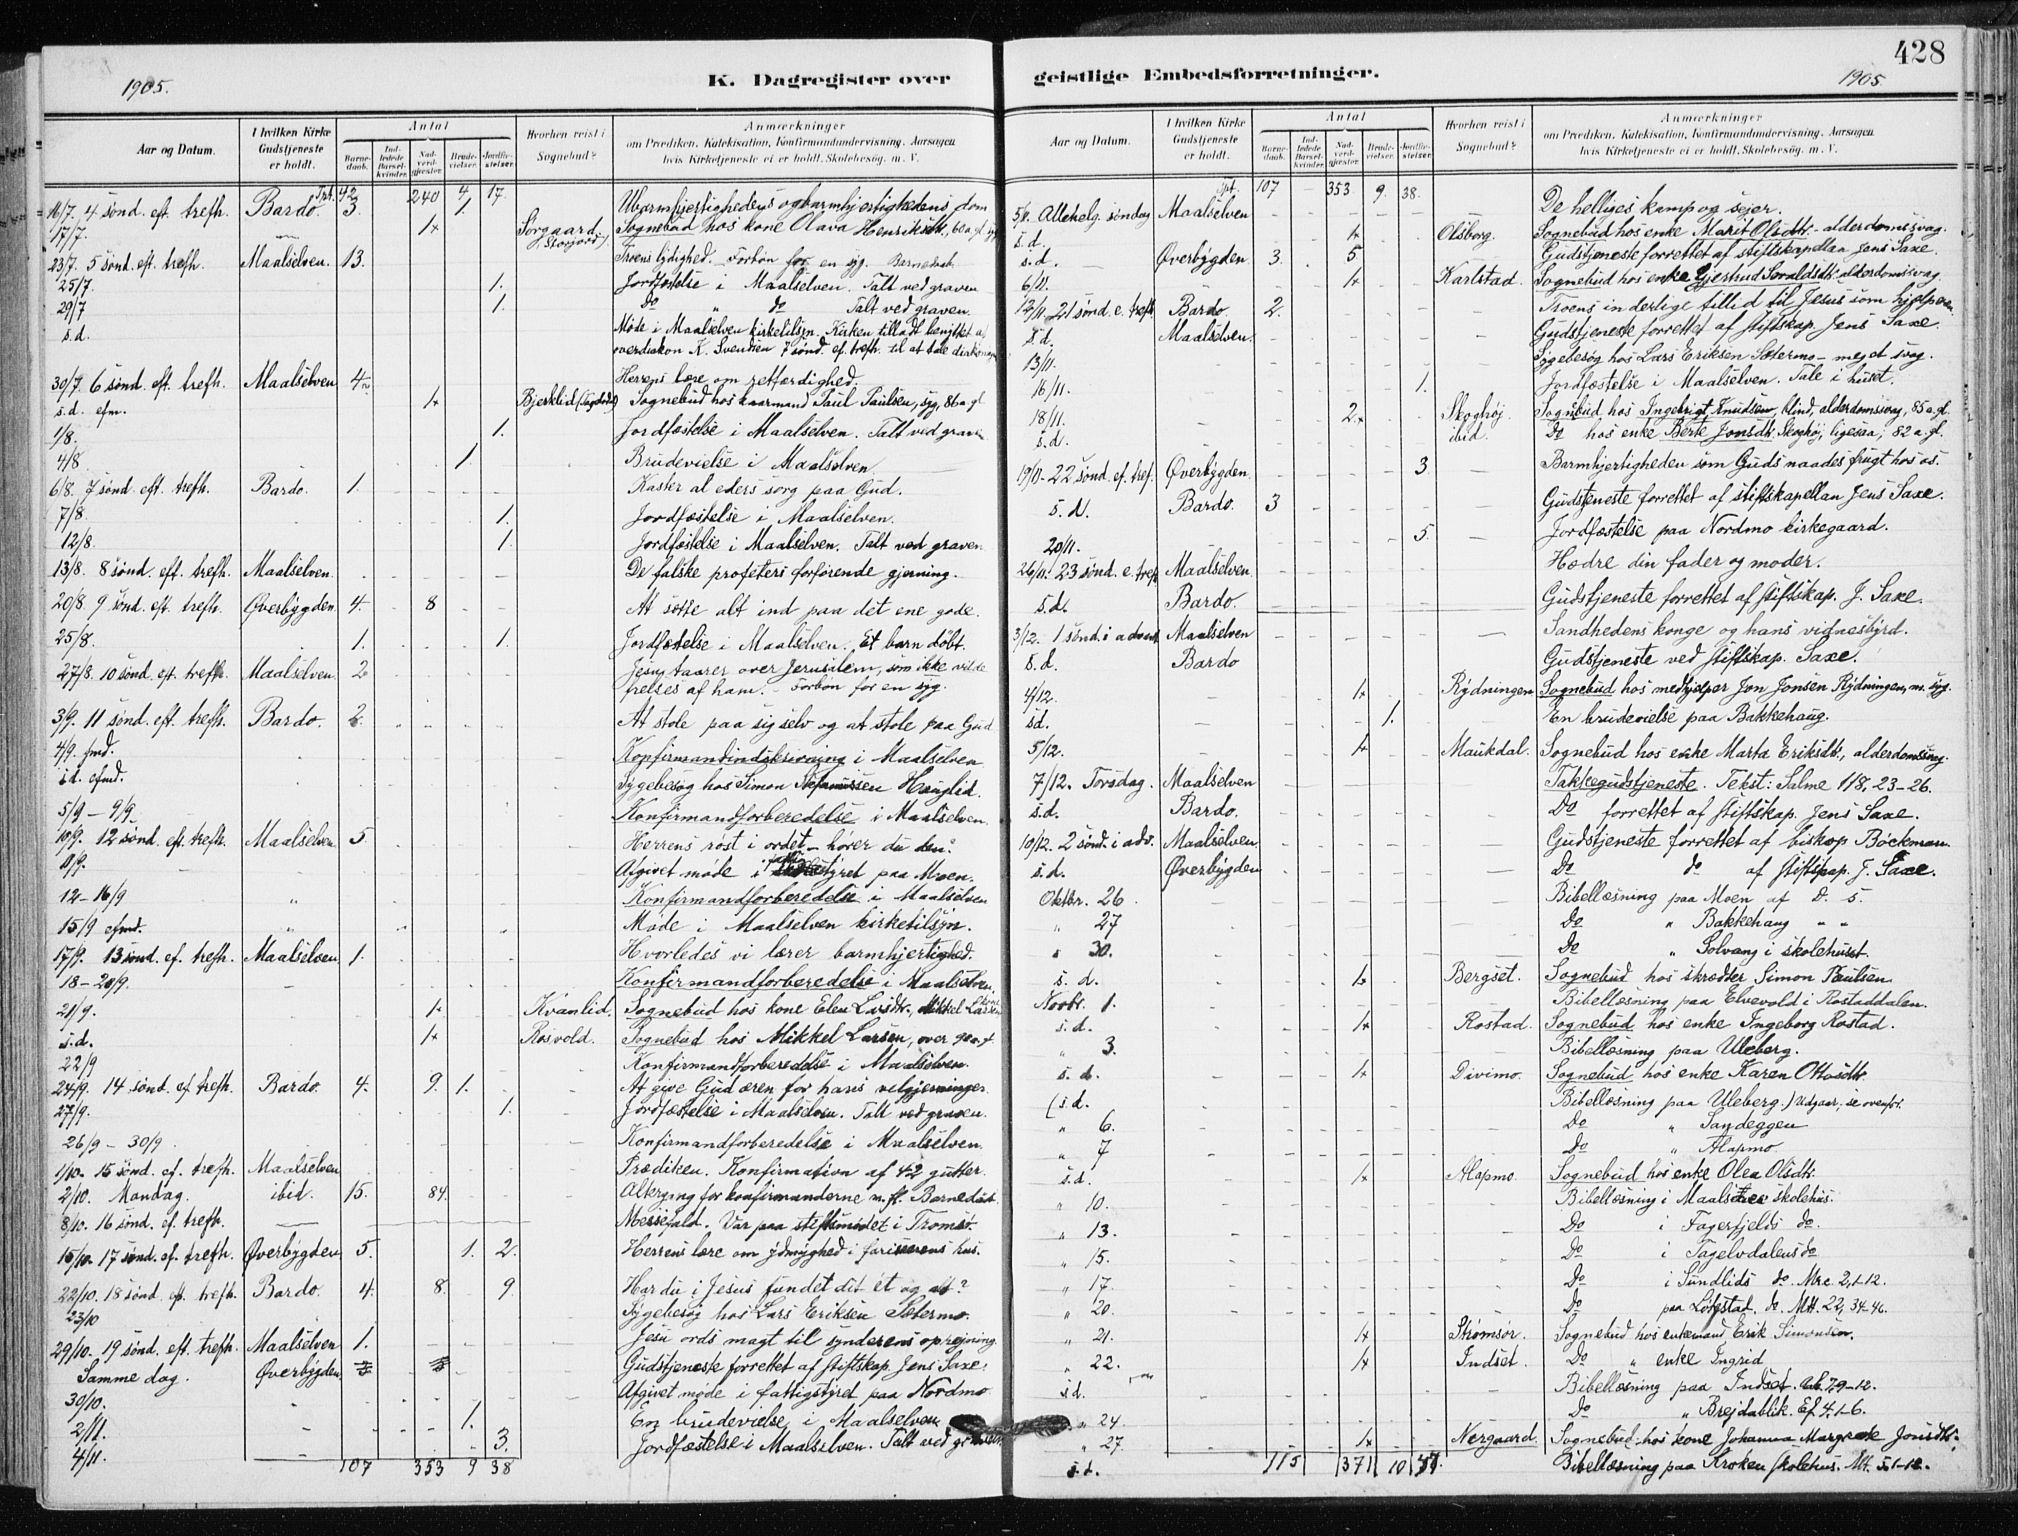 428
1905.
K. Dagregister over geistlige Embedsforretninger.
1905
Aar og Datum. I hvilken Kirke Gudstjeneste er holdt. Antal Barnedaab. Indledede Barselkvinder. Nadverdgjæster. Brudevielser. Jordfæstelser. Hvorhen reist i Sognebud? Anmærkninger om Prædiken, Katekisation, Konfirmandundervisning, Aarsagen hvis Kirketjeneste ei er holdt, Skolebesög, m. V.
Tpt. 42 240 4 17.
16/7. 4 sönd. eft. trefh. Bardo. 3. 1. Ubarmhjertighedens og barmhjertighedens dom
17/7. 1+ Sørgaard Storjord). Sognebud hos kone Olava Henriksdtr., 60 a. gl. syg
23/7. 5 sönd. eft. trefh. Maalselven. 13. Troens lydighed. Forbön for en syg. Barnedaab
25/7. 1. Jordfæstelse i Maalselven. Talt ved graven
29/7 1. do " do Talt ved graven.
s. d. Møde i Maalselven kirketilsyn. Kirken tilladt benyttet af
overdiakon K. Svendsen 7 sönd. ef. trefh. til at tale
30/7. 6 sönd. eft. trefh. Maalselven 4 Herrens lære om retfærdighed.
s. d. efm. 1+ Bjerklid Sognebud hos kaarmand Paul Paulsen, syg, 86 a. gl
1/8. 1. Jordfæstelse i Maalselven. Talt ved graven
4/8 1. Brudevielse i Maalselven.
6/8. 7 sönd. eft. trefh. Bardo. 1. Kaster al eders sorg paa Gud.
7/8. 1. Jordfæstelse i Maalselven.
12/8. 1. Jordfæstelse i Maalselven. Talt ved graven
13/8. 8 sönd. eft. trefh. Maalselven. De falske profeters forförende gjerning.
20/8. 9 sönd. eft. trefh. Øverbygden. 4. 8 At sætte alt ind paa det ene gode.
25/8. 1. 1. Jordfæstelse i Maalselven. Et barn döbt.
27/8. 10 sönd. ef. trefh. Maalselven. 2 Jesu taarer over Jerusalem, som ikke vilde
frelses af ham. - Forbön for en syg.
3/9. 11 sönd. eft. trefh. Bardo. 2. At stole paa sig selv og at stole paa Gud
4/9. fmd. Konfirmandindskrivning i Maalselven
s. d. efmd. Sygebesøg hos Simon Hauglid.
5/9 - 9/9. Konfirmandforberedelse i Maalselven.
10/9. 12 sönd. eft. trefh. Maalselven. 5. Herrens röst i ordet - hører du den?
11/9. Afgivet møde i fattigstyret paa Moen.
12 - 16/9 " Konfirmandforberedelse i Maalselven
15/9 efmd. " Møde i Maalselven kirketilsyn.
17/9. 13 sönd. ef. trefh. Maalselven. 1. Hvorledes vi lærer barmhjertighed.
18 - 20/9. Konfirmandforberedelse i Maalselven.
21/9. 1+ Kvanlid. Sognebud hos kone Elen Larsdtr.
s. d. 1+ Rosvold. Sognebud hos Mikkel Larsen, over 90 a. gl.
22/9 Konfirmandforberedelse i Maalselven.
24/9. 14 sönd. ef. trefh. Bardo. 4. 9. 1. At give Gud æren for hans velgjerninger
27/9. 1. Jordfæstelse i Maalselven. Talt ved graven.
26/9 - 30/9. Konfirmandforberedelse i Maalselven.
1/10. 15 sönd. ef. trefh. Maalselven Prædiken. Konfirmation af 42 gutter.
2/10. Mandag. ibid. 15. 84. Altergang for konfirmanderne m. fl. Barnedaab.
8/10. 16 sönd. ef. trefh. Messefald. Var paa stiftsmødet i Tromsö.
15/10. 17 sönd. ef. trefh. Øverbygden 5. 1. 2. Herrens lære om ydmyghed i farisæerens hus.
22/10. 18 sönd. eft. trefh. Bardo. 4. 8. 9. Har du i Jesus fundet dit ét og alt?
23/10 Sygebesøg hos Lars Eriksen Sætermo.
29/10. 19 sönd. eft. trefh. Maalselven 1. Jesu ords magt til synderens oprejsning.
Samme dag. Øverbygden. Gudstjeneste forrettet af stiftskap. Jens Saxe.
30/10. Afgivet møde i fattigstyret paa Nordmo
2/11. 1. En brudevielse i Maalselven
4/11. 3. Jordfæstelse i Maalselven. Talt ved graven.
107 353 9 38
Aar og Datum. I hvilken Kirke Gudstjeneste er holdt. Antal Barnedaab. Indledede Barselkvinder. Nadverdgjæster. Brudevielser. Jordfæstelser. Hvorhen reist i Sognebud? Anmærkninger om Prædiken, Katekisation, Konfirmandundervisning, Aarsagen hvis Kirketjeneste ei er holdt, Skolebesög, m. V.
Tpt. 107 - 353 9 38.
5/11. Allehelg. söndag Maalselven De helliges kamp og sejer.
s. d. 1+ Olsborg. Sognebud hos enke Marit Olsdtr. alderdomssvag.
s. d. Øverbygden 3. 5 Gudstjeneste forrettet af stiftskapellan Jens Saxe.
6/11. 1+ Karlstad. Sognebud hos enke Gjertrud alderdomssvag
12/11. 21 sönd. e. trefh. Bardo 2. Troens inderlige tillid til Jesus som hjælperen
s. d. Maalselven. Gudstjeneste forrettet af stiftskap. Jens Saxe.
13/11. Sygebesøg hos Lars Eriksen Sætermo - meget svag.
16/11. 1. Jordfæstelse i Maalselven. Tale i huset.
18/11. 2+ Skoghøj Sognebud hos Ingebrigt Knudsen, blind, alderdomssvag, 85 a. gl.
s. d. ibid. Do hos enke Berte Jonsdtr. Skoghöj, ligesaa, 82 a. gl.
19/11. 22 sönd. ef. tref. Øverbygden. 3. Barmhjertigheden som Guds naades frugt hos os.
s. d. Bardo. 3 Gudstjeneste forrettet af stiftskapellan Jens Saxe.
20/11. 5. Jordfæstelse paa Nordmo kirkegaard.
26/11. 23 sönd. e. tref. Maalselven Hædre din fader og moder.
s. d. Bardo. Gudstjeneste forrettet af stiftskap. J. Saxe.
3/12. 1 sönd. i advent Maalselven Sandhedens konge og hans vidnesbyrd.
s. d. Bardo Gudstjeneste ved stiftskap. Saxe.
4/12. 1+ Rydningen Sognebud hos medhjælper Jon Jonsen Rydningen, m. syg.
s. d. 1. En brudevielse paa Bakkehaug.
5/12. 1+ Maukdal. Sognebud hos enke Marta Eriksdtr., alderdomssvag.
7/12. Torsdag. Maalselven Takkegudstjeneste. Tekst: Salme 118, 23-26.
s. d. Bardo. Do forrettet af stiftskap. Jens Saxe.
10/12. 2 sönd. i adv. Maalselven Gudstjeneste forrettet af biskop Böckman.
s. d. Øverbygden Do do af stiftskap. J. Saxe.
Oktbr. 26 Bibellæsning paa Moen af D. S.
" 27 Do " Bakkehaug " "
" 30. Do " Solvang i skolehuset.
s. d. 1+ Bergset. Sognebud hos skrædder Simon Paulsen
Novbr. 1. Bibellæsning paa Elvevold i Rostaddalen.
s. d. 1+ Rostad. Sognebud hos enke Ingeborg Rostad.
" 3. Bibellæsning paa Uleberg.
s. d. 1+ Divimo. Sognebud hos enke Karen Ottosdtr.
(s. d. Bibellæsning paa Uleberg.) Udgaar, se ovenfor.
" 6. Do " Sandeggen
" 7 Do " Alapmo
s. d. 1+ Alapmo. Sognebud hos enke Olea Olsdtr.
" 10. Bibellæsning i skolehus.
" 13. Do i Fagerfjelds do.
" 15. Do i Tagelvdalens do
" 17. Do i Sundlids do. Mrc. 2, 1-12.
" 20. Do paa do. Mtt. 22, 34-46.
" 21. 1+ Strømsør. Sognebud hos enkemand Erik Simonsen.
" 22. 1+ Indset. Do " enke Ingrid
s. d. Bibellæsning paa Indset.
" 24. Do " Brejdablik. Ef. 4. 1-6.
" 27. 1+ Nergaard. Sognebud hos kone Johanna Jonsdtr.
s. d. Bibellæsning paa Kroken skolehus. Mt. 5. 1-12.
115 371 10